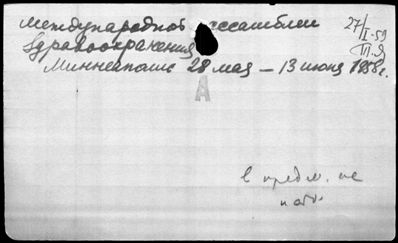 международной ассамблеи
здравоохранения
Миннеаполис 28 мая – 13 июня 1958 г.
27/I-59
A
в предм. не